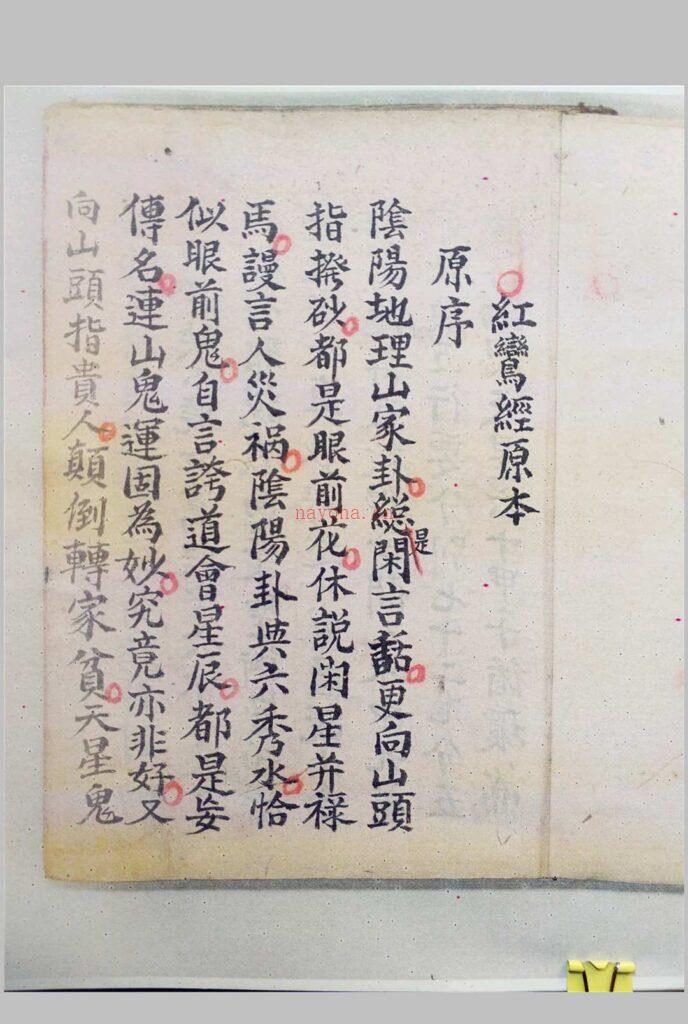 紅鸞經原本
原序
陰陽地理山家卦總是閑言話更向山頭
指撥砂都是眼前花休説闲星并祿
馬謾言人災禍陰陽卦與六秀水恰
似眼前鬼自言誇道會星辰都是妄
傳名連山鬼運固為妙究竟亦非好又
向山頭指貴人顛倒轉家貧天星鬼